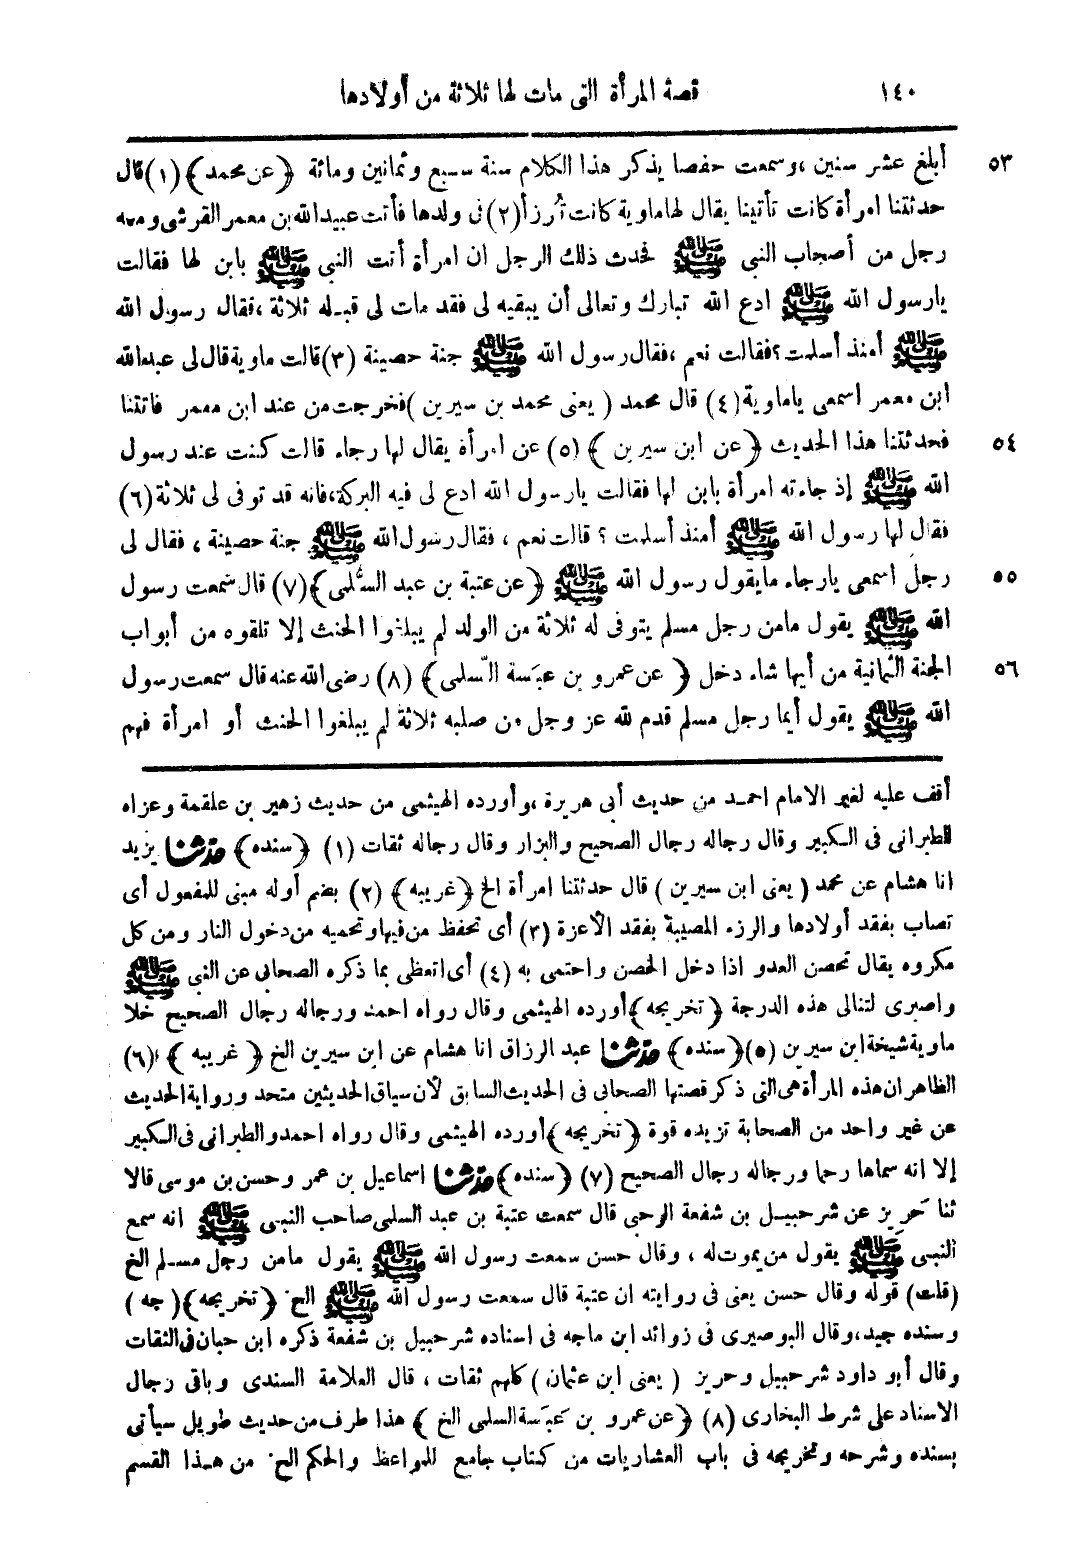 ١٤٠ قصة المرأة التى مات لها ثلاثة من أولادها
٥٣ أبلغ عشر سنين ،وسمعت حفصا يذكر هذا الكلام سنة سبع وثمانين ومائة ﴿عن محمد﴾ (١) قال
حدثتنا امرأة كانت تأتينا يقال لها ماوية كانت تُرزأ (٢) فى ولدها فأتت عبيدالله بن معمر القرشى ومعه
رجل من أصحاب النبى ﷺ فحدث ذلك الرجل ان امرأة أتت النبى ﷺ بابن لها فقالت
يارسول الله ﷺ ادع الله تبارك وتعالى أن يبقيه لى فقد مات لى قبله ثلاثة ،فقال رسول الله
ﷺ أمنذ أسلمت؟ فقالت نعم ،فقال رسول الله ﷺ جنة حصينة (٣) قالت ماوية قال لى عبدالله
ابن معمر اسمعى ياماوية (٤) قال محمد ( يعنى محمد بن سيرين ) فخرجت من عند ابن معمر فاتتنا
٥٤ فحدثتنا هذا الحديث ﴿عن ابن سيرين ﴾ (٥) عن امرأة يقال لها رجاء قالت كنت عند رسول
الله ﷺ إذ جاءته امرأة بابن لها فقالت يارسول الله ادع لى فيه البركة،فانه قد توفى لى ثلاثة (٦)
فقال لها رسول الله ﷺ أمنذ أسلمت ؟ قالت نعم ، فقال رسول الله ﷺ جنة حصينة ، فقال لى
٥٥ رجل اسمعى يارجاء مايقول رسول الله ﷺ ﴿عن عتبة بن عبد السُّلمى﴾ (٧) قال سمعت رسول
الله ﷺ يقول مامن رجل مسلم يتوفى له ثلاثة من الولد لم يبلغوا الحنث إلا تلقوه من أبواب
٥٦ الجنة الثمانية من أيها شاء دخل ﴿ عن عمرو بن عبَسة السّلمى﴾ (٨) رضى الله عنه قال سمعت رسول
الله ﷺ يقول أيما رجل مسلم قدم لله عز وجل من صلبه ثلاثة لم يبلغوا الحنث أو امرأة فهم
أقف عليه لغير الامام احمد من حديث أبى هريرة ،وأورده الهيثمى من حديث زهير بن علقمة وعزاه
للطبرانى فى الكبير وقال رجاله رجال الصحيح والبزار وقال رجاله ثقات (١) ﴿سنده﴾ حدثنا يزيد
انا هشام عن محمد ( يعنى ابن سيرين ) قال حدثتنا امرأة الخ ﴿غريبه﴾ (٢) بضم أوله مبنى للمفعول أى
تصاب بفقد أولادها والرزء المصيبة بفقد الأعزة (٣) أى تحفظ من فيها وتحميه من دخول النار ومن كل
مكروه يقال تحصن العدو اذا دخل الحصن واحتمى به (٤) أى اتعظى بما ذكره الصحابى عن النبى ﷺ
واصبرى لتنالى هذه الدرجة ﴿تخريجه﴾ أورده الهيثمى وقال رواه احمد ورجاله رجال الصحيح خلا
ماوية شيخة ابن سيرين (٥) ﴿سنده﴾ حدثنا عبد الرزاق انا هشام عن ابن سيرين الخ ﴿ غريبه ﴾ (٦)
الظاهر ان هذه المرأة هى التى ذكر قصتها الصحابى فى الحديث السابق لأن سياق الحديثين متحد ورواية الحديث
عن غير واحد من الصحابة تزيده قوة ﴿تخريجه﴾ أورده الهيثمى وقال رواه احمد والطبرانى فى الكبير
إلا انه سماها رحما ورجاله رجال الصحيح (٧) ﴿سنده﴾ حدثنا اسماعيل بن عمر وحسن بن موسى قالا
ثنا حَرِيز عن شرحبيل بن شفعة الرحبى قال سمعت عتبة بن عبد السلمى صاحب النبى ﷺ انه سمع
النبى ﷺ يقول من يموت له ، وقال حسن سمعت رسول الله ﷺ يقول مامن رجل مسلم الخ
(قلت) قوله وقال حسن يعنى فى روايته ان عتبة قال سمعت رسول الله ﷺ الخ ﴿تخريجه﴾ ( جه )
وسنده جيد،وقال البوصيرى فى زوائد ابن ماجه فى اسناده شرحبيل بن شفعة ذكره ابن حبان فى الثقات
وقال أبو داود شرحبيل وحريز ( يعنى ابن عثمان ) كلهم ثقات ، قال العلامة السندى وباقى رجال
الاسناد على شرط البخارى (٨) ﴿عن عمرو بن عبَسة السلمى الخ ﴾ هذا طرف من حديث طويل سيأتى
بسنده وشرحه وتخريجه فى باب العشاريات من كتاب جامع للمواعظ والحكم الخ من هذا القسم